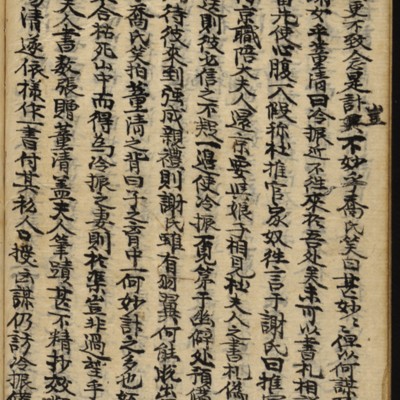 更不致念是計豈不妙乎喬氏笑曰甚妙々々但以何謀
如乎董清曰冷振近不往來於吾处矣未可以書札相
當先使心腹一人假称杜推官家奴徃言于謝氏曰推官
京職陪大夫人還京要與娘子相見杜夫人之書札偽
送則彼必信之不疑一邊使冷振覓第于幽僻处預備
待彼來到强成親禮則謝氏雖有羽翼何能脫出
喬氏笑拍董清之背曰子之肓中一何妙計之多也
合祐死山中而得為冷振之妻則於渠豈非過望乎
夫人書数張贈董清盖夫人筆蹟甚不精抄故
清遂依樣作一書付其私人口授其謀仍訪冷振備